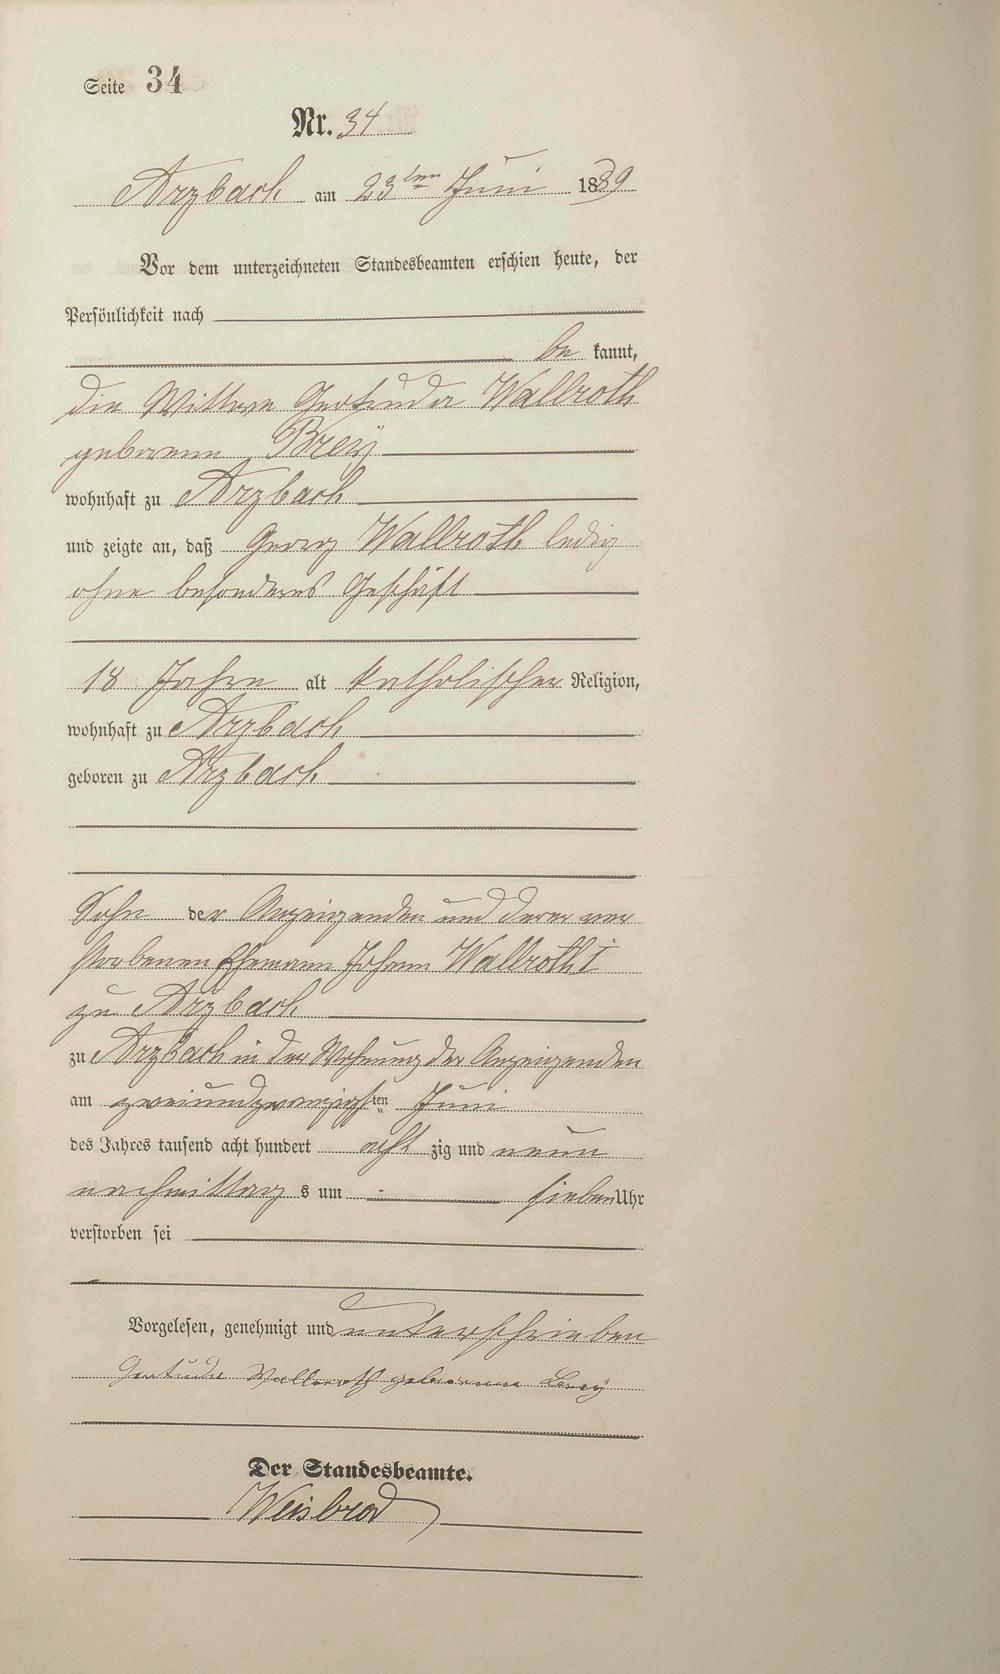 Seite 34
Nr. 34
Arzbach am 23ten Juni 1889
Vor dem unterzeichneten Standesbeamten erschien heute, der
Persönlichkeit nach
be kannt,
die Wittwe Gertruda Wallroth
geborenne Breÿ
wohnhaft zu Arzbach
und zeigte an, daß Georg Wallroth ledig
ohne besonderes Geschäft
18 Jahre alt katholischer Religion,
wohnhaft zu Arzbach
geboren zu Arzbach
Sohn der Anzeigenden und deren ver
storbenen Ehemann Johann Wallroth I
zu Arzbach
zu Arzbach in der Wohnung der Anzeigenden
am zweiundzwanzigsten Juni
des Jahres tausend acht hundert acht zig und neun
nachmittag s um sieben Uhr
verstorben sei
Vorgelesen, genehmigt und unterschrieben
Gertrude Wallroth geborenne Breÿ
Der Standesbeamte.
Weisbrod